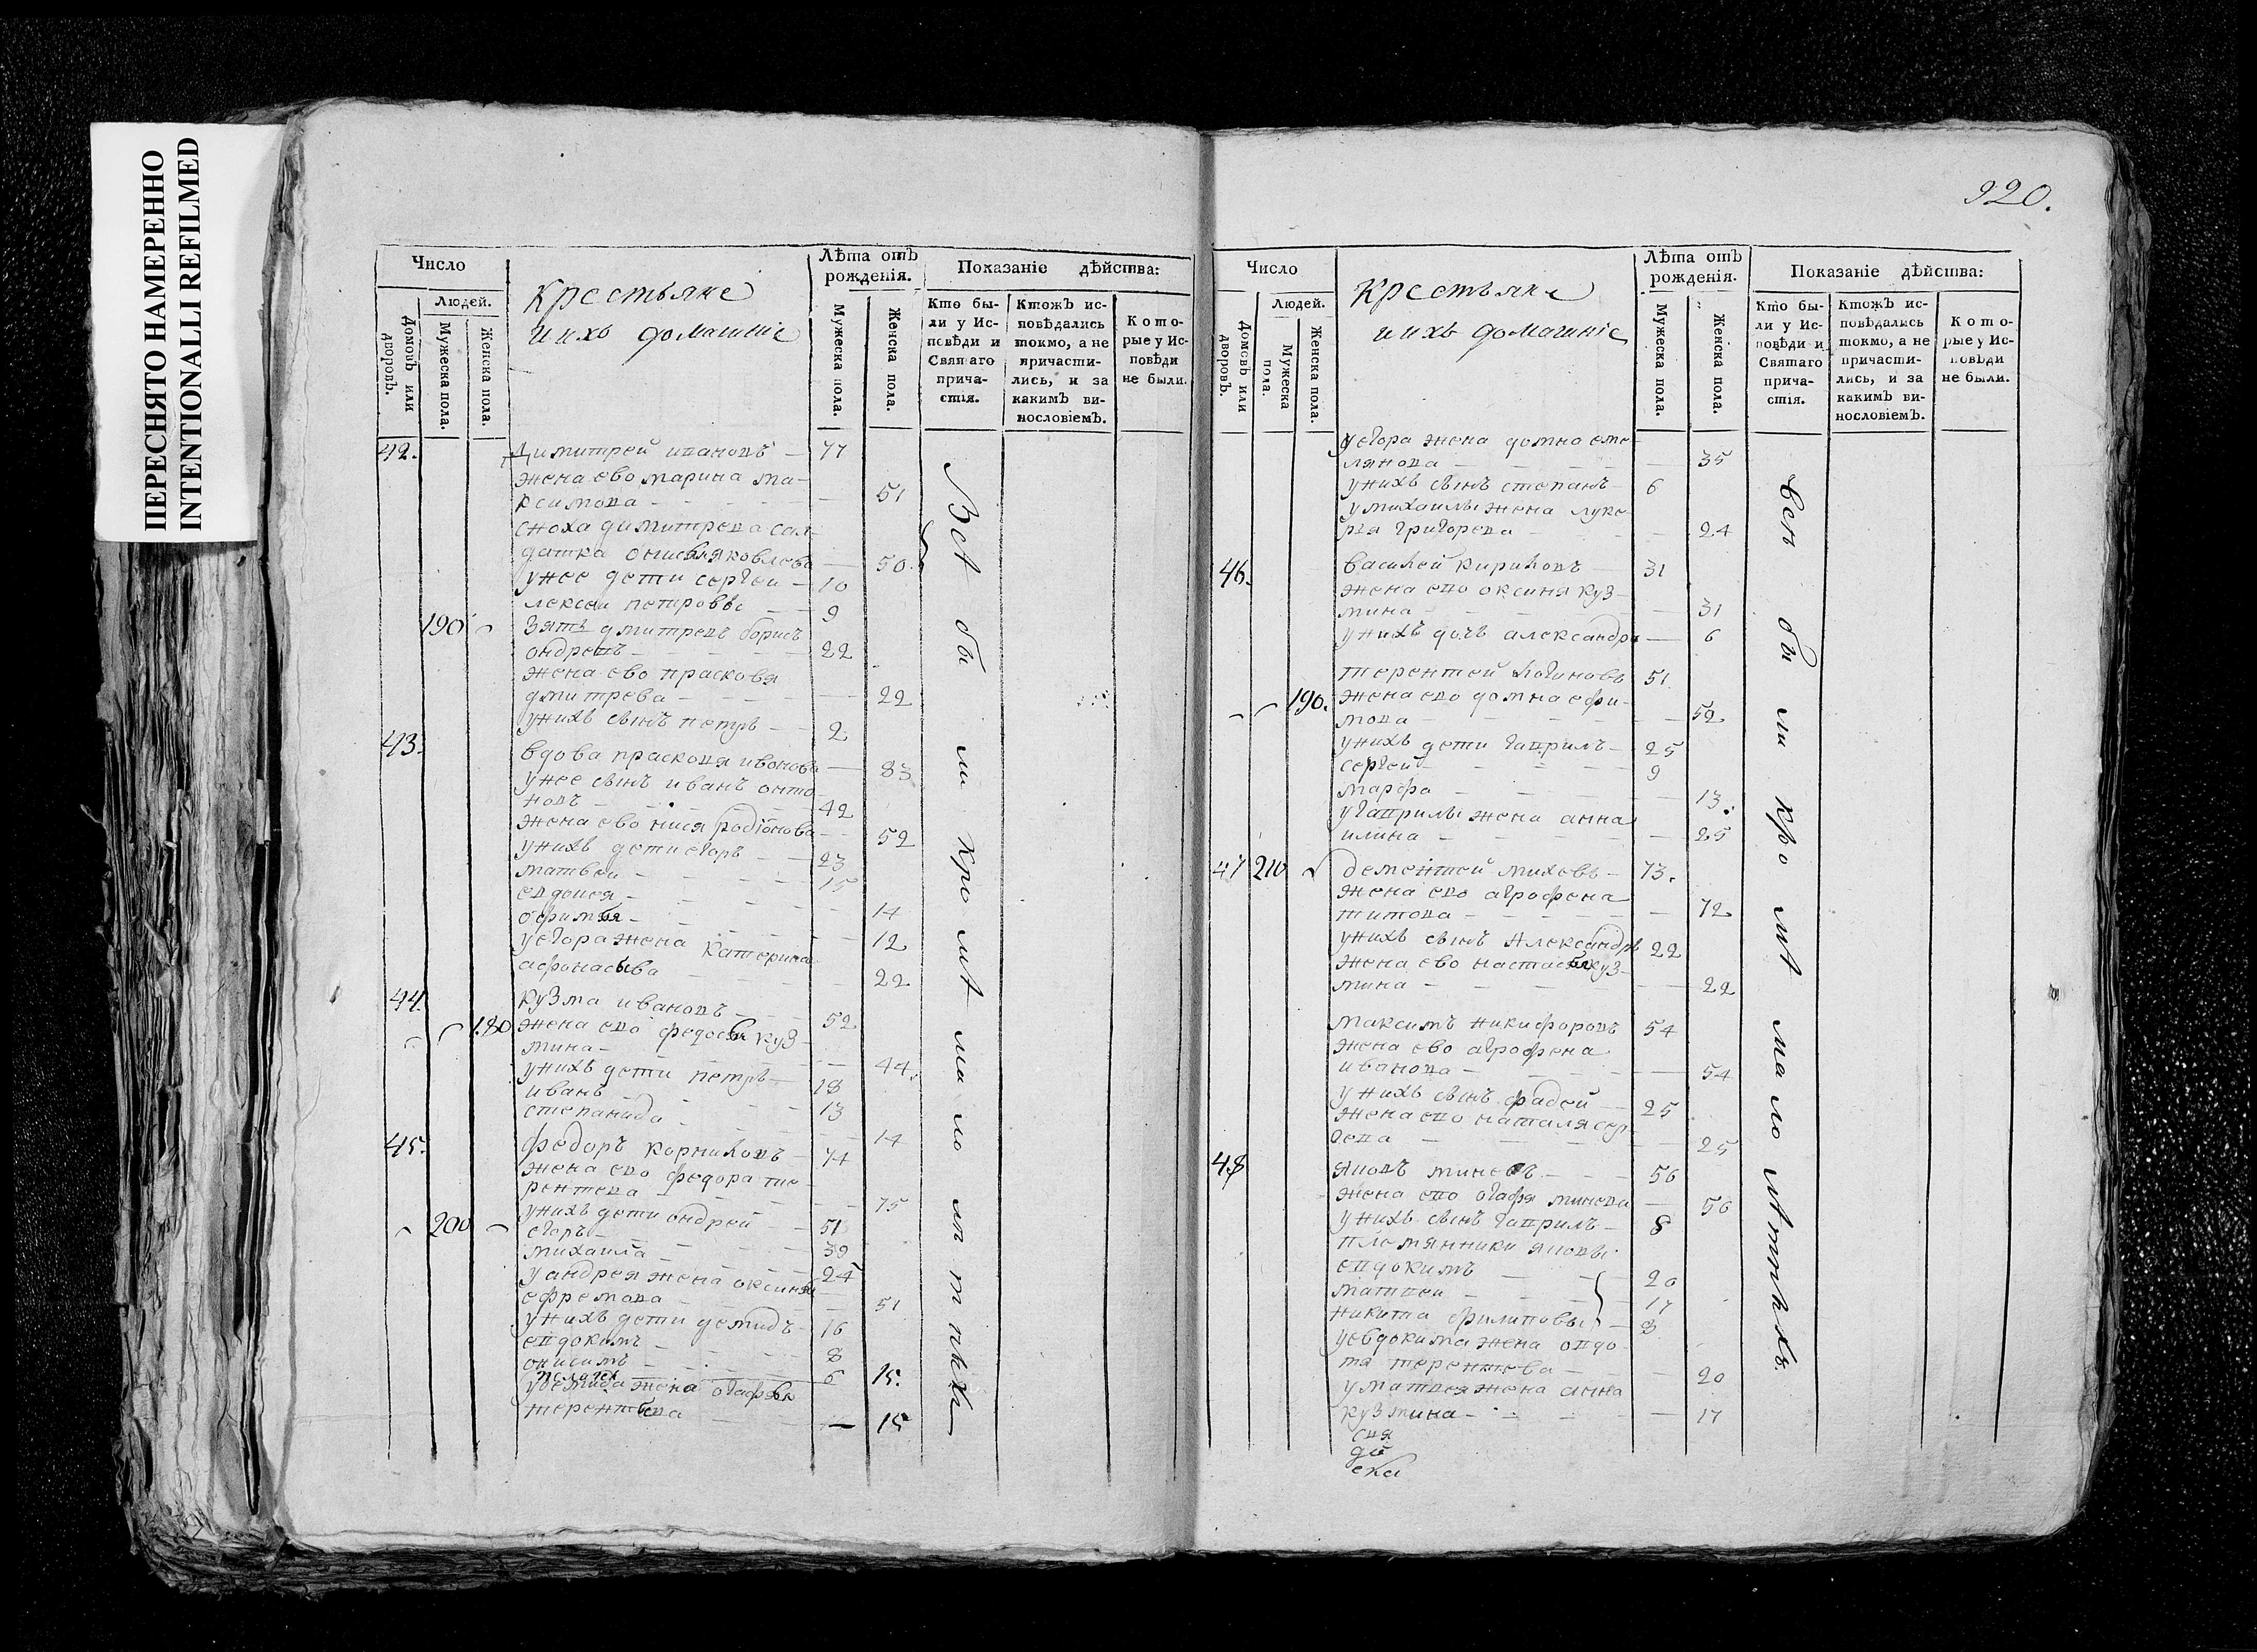 ПЕРЕСНЯТО НАМЕРЕННО
INTENTIONALLI REFILMED
Число
Людей.
Домовъ или дворовъ.
Мужеска пола.
Женска пола.
Крестьяне
и ихъ домашніе
Лѣта отъ рожденія.
Мужеска пола.
Женска пола.
Показаніе дѣйства:
Кто бы-
ли у Ис-
повѣди и
Святаго
прича-
стія.
Ктожъ ис-
повѣдались
токмо, а не
причасти-
лись, и за
какимъ ви-
нословіемъ.
Кото-
рые у Ис-
повѣди
не были.
42. Димитрей ивановъ 77
жена ево марина ма-
ксимова 51
сноха димитрева сол-
датка яковлева 50
унее дети сергеи 10
лексеи петровы 9
190 Зять дмитревъ борисъ
ондревъ 22
жена ево прасковя
дмитрева 22
унихъ сынъ петръ 2
43. вдова прасковя ивонова 83
унее сынъ иванъ онто
новъ 42
жена ево родіонова 52
унихъ дети егоръ 23
матвеи 15
евдокея 14
офимья 12
уегора жена катерина
афонасьва 22
44. кузма ивановъ 52
180 жена ево федосья куз
мина 44.
унихъ дети петръ 18
иванъ 13
степанида 14
45. федоръ корниловъ 74
жена ево федора те
рентева 75
200 унихъ дети ондрей 51
егоръ 39
михаила 24
уандрея жена оксинья
ефремова 51
унихъ дети демидъ 16
евдокимъ 8
онисимъ 6
пелагея 15.
удемида жена огафья
терентьева 15
Всѣ бы ли кро мѣ ма ло лѣтнихъ
920.
Число
Людей.
Домовъ или дворовъ.
Мужеска пола.
Женска пола.
Крестьяне
и ихъ домашніе
Лѣта отъ рожденія.
Мужеска пола.
Женска пола.
Показаніе дѣйства:
Кто бы-
ли у Ис-
повѣди и
Святаго
прича-
стія.
Ктожъ ис-
повѣдались
токмо, а не
причасти-
лись, и за
какимъ ви-
нословіемъ.
Кото-
рые у Ис-
повѣди
не были.
уегора жена домна еме
лянова 35
унихъ сынъ степанъ 6
умихаилы жена луке
рья григорева 24
46. василей кириловъ 31
жена ево оксиня куз
мина 31
унихъ дочь александра 6
терентей логиновъ 51
190. жена ево домна ефи-
мова 52
унихъ дети гаврилъ 25
сергей 9
марфа 13.
угаврилы жена анна
илина 25
47 210 дементей михевъ 73.
жена ево агрофена
титова 72
унихъ сынъ Александръ 22
жена ево настасья куз-
мина 22
максимъ никифоровъ 54
жена ево агрофена
иванова 54
унихъ сынъ фадей 25
жена ево наталя сер
гева 25
48 яковъ миневъ 56
жена ево огафя минева 56
унихъ сынъ гаврилъ 8
племянники яковы
евдокимъ 20
матвеи 17
никита филиповы 8
уевдокима жена овдо
тя терентева 20
уматвея жена анна
кузмина 17
сия
де
ека
всѣ бы ли кро мѣ ма ло лѣтнихъ